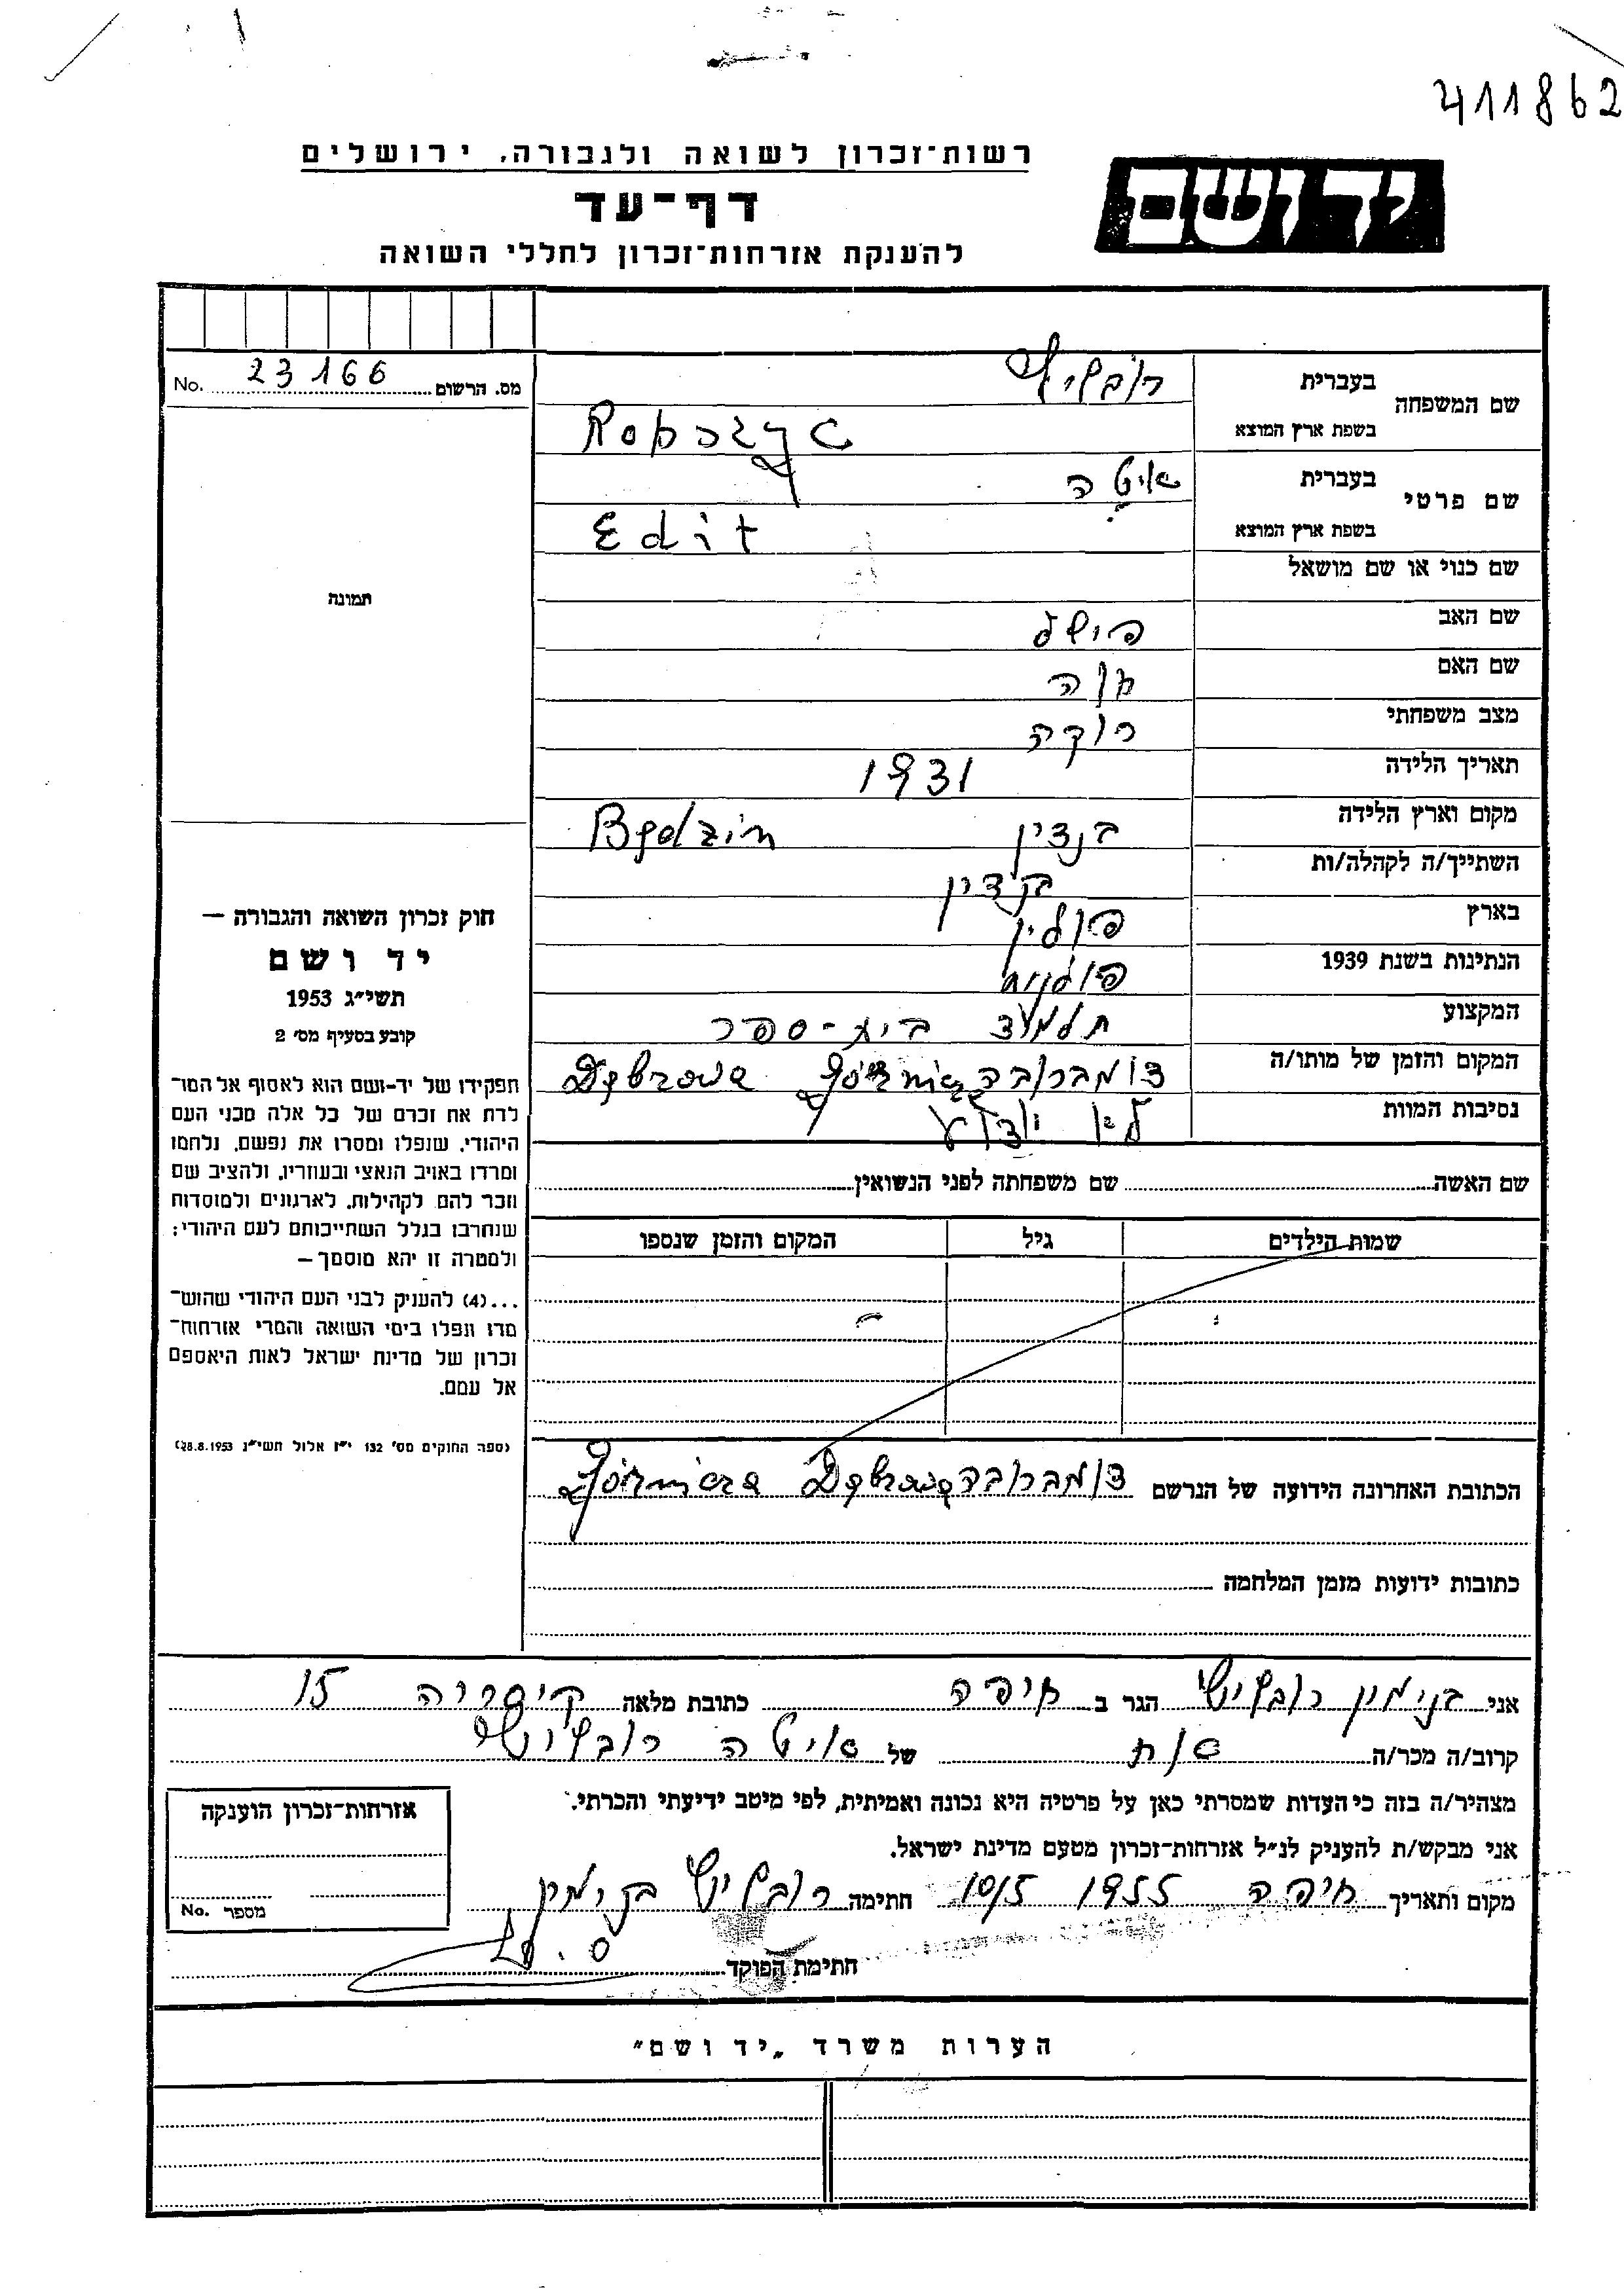 411862
רשות־זכרון לשואה ולגבורה, ירושלים
יד ושם
דף־עד
להענקת אזרחות־זכרון לחללי השואה
מס. הרשום 23166 No.
תמונה
שם המשפחה
בעברית
בשפת ארץ המוצא Robszyc
שם פרטי
בעברית איטה
בשפת ארץ המוצא Edit
שם כנוי או שם מושאל
שם האב פישל
שם האם חוה
מצב משפחתי רוקה
תאריך הלידה 1931
מקום וארץ הלידה בנדין Będzin
השתייך/ה לקהלה/ות בנדין
בארץ פולין
הנתינות בשנת 1939 פולנית
המקצוע תלמיד בית-ספר
המקום והזמן של מותו/ה דומברובה Górnicza Dąbrowa
נסיבות המוות לא ידוע
שם האשה שם משפחתה לפני הנשואין
שמות הילדים גיל המקום והזמן שנספו
הכתובת האחרונה הידועה של הנרשם דומברובה Dąbrowa Górnicza
כתובות ידועות מזמן המלחמה
חוק זכרון השואה והגבורה —
יד ושם
תשי״ג 1953
קובע בסעיף מס׳ 2
תפקידו של יד-ושם הוא לאסוף אל המו־
לדת את זכרם של כל אלה מבני העם
היהודי, שנפלו ומסרו את נפשם, נלחמו
ומרדו באויב הנאצי ובעוזריו, ולהציב שם
וזכר להם לקהילות, לארגונים ולמוסדות
שנחרבו בגלל השתייכותם לעם היהודי;
ולמטרה זו יהא מוסמך —
...(4) להעניק לבני העם היהודי שהוש־
מדו ונפלו בימי השואה והמרי אזרחות־
זכרון של מדינת ישראל לאות היאספם
אל עמם.
(ספר החוקים מס׳ 132 י״ז אלול תשי״ג 28.8.1953)
אני בנימין רובשיץ הגר ב חיפה כתובת מלאה קיסריה 15
קרוב/ה מכר/ה אח של איטה רובשיץ
מצהיר/ה בזה כי העדות שמסרתי כאן על פרטיה היא נכונה ואמיתית, לפי מיטב ידיעתי והכרתי.
אני מבקש/ת להעניק לנ״ל אזרחות־זכרון מטעם מדינת ישראל.
מקום ותאריך חיפה 1955 10/5 חתימה רובשיץ בנימין
חתימת הפוקד
אזרחות־זכרון הוענקה
מספר No.
הערות משרד „יד ושם״